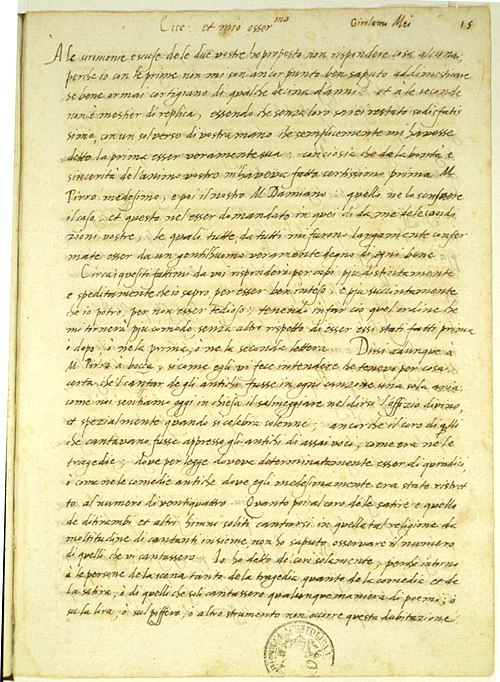 Ecc.te et mio osser.mo
Girolamo Mei
15
A le cirimonie e scuse de le due vostre ho proposto non rispondere cosa alcuna;
perche io con le prime non mi son ancor punto ben saputo addimesticare
se bene ormai cortigiano di qualche decina d'anni: et a le seconde
non è mestier di replica, essendo che senza loro sarei restato sodisfatis
simo, con un sol verso di vostra mano che semplicemente mi havesse
detto la prima esser veramente sua; conciosia che de la bontà e
sincerità de l'animo vostro m'haveva fatto certissimo prima M.
Pirro medesimo, e poi il nostro M. Damiano: quelli ne la
il caso, et questo nel esser domandato in quei dì da me de le condi
zioni vostre, le quali tutte da tutti mi furono largamente confer
mate esser da un gentilhuomo veramente degno di ogni bene.
Circa i quesiti fattimi da voi risponderò per capi più distintamente
e speditamente che io saprò, per esser ben inteso, e più succintamente
che io potrò, per non esser tedioso; tenendo in far ciò quel ordine che
mi tornerà più comodo senza altro rispetto di esser essi stati fatti prima
ò dopo ò ne la prima, ò ne la seconda lettera. Dissi adunque à
M. Pirro à bocca, sicome egli vi fece intendere che tenevo per cosa
certa che'l cantar de gli antichi fusse in ogni canzone una sola aria
come noi sentiamo oggi in chiesa il salmeggiare nel dirsi l'offizio divino,
et spezialmente quando si celebra solenne; ancor che il coro di q.lli
che cantavano fusse appresso gli antichi di assai voci, come era ne le
tragedie; dove per legge doveva determinatamente esser di quindici,
ò come ne le comedie antiche dove egli medesimamente era stato ristret
to al numero di ventiquattro. Quanto poi al coro de le satire e quello
de ditirambi et altri himni soliti cantarsi in quella tal religione da
moltitudine di cantanti insieme non ho saputo osservare il numero
di quelli che vi cantassero. Io ho detto di cori solamente, perche intorno
à le persone de la scena tanto de la tragedia quanto de la comedia et de
la satira, ò di quelli che soli cantassero qualunque maniera di poemi; ò
su la lira, ò sul piffero, ò altro strumento non occorre questa dubitazione